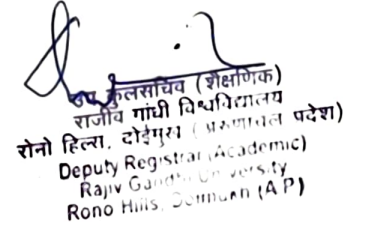 उप कुलसचिव (शैक्षणिक)
राजीव गांधी विश्वविद्यालय
रोनो हिल्स, दोईमुख (अरुणाचल प्रदेश)
Deputy Registrar (Academic)
Rajiv Gandhi University
Rono Hills, Doimukh (A P)